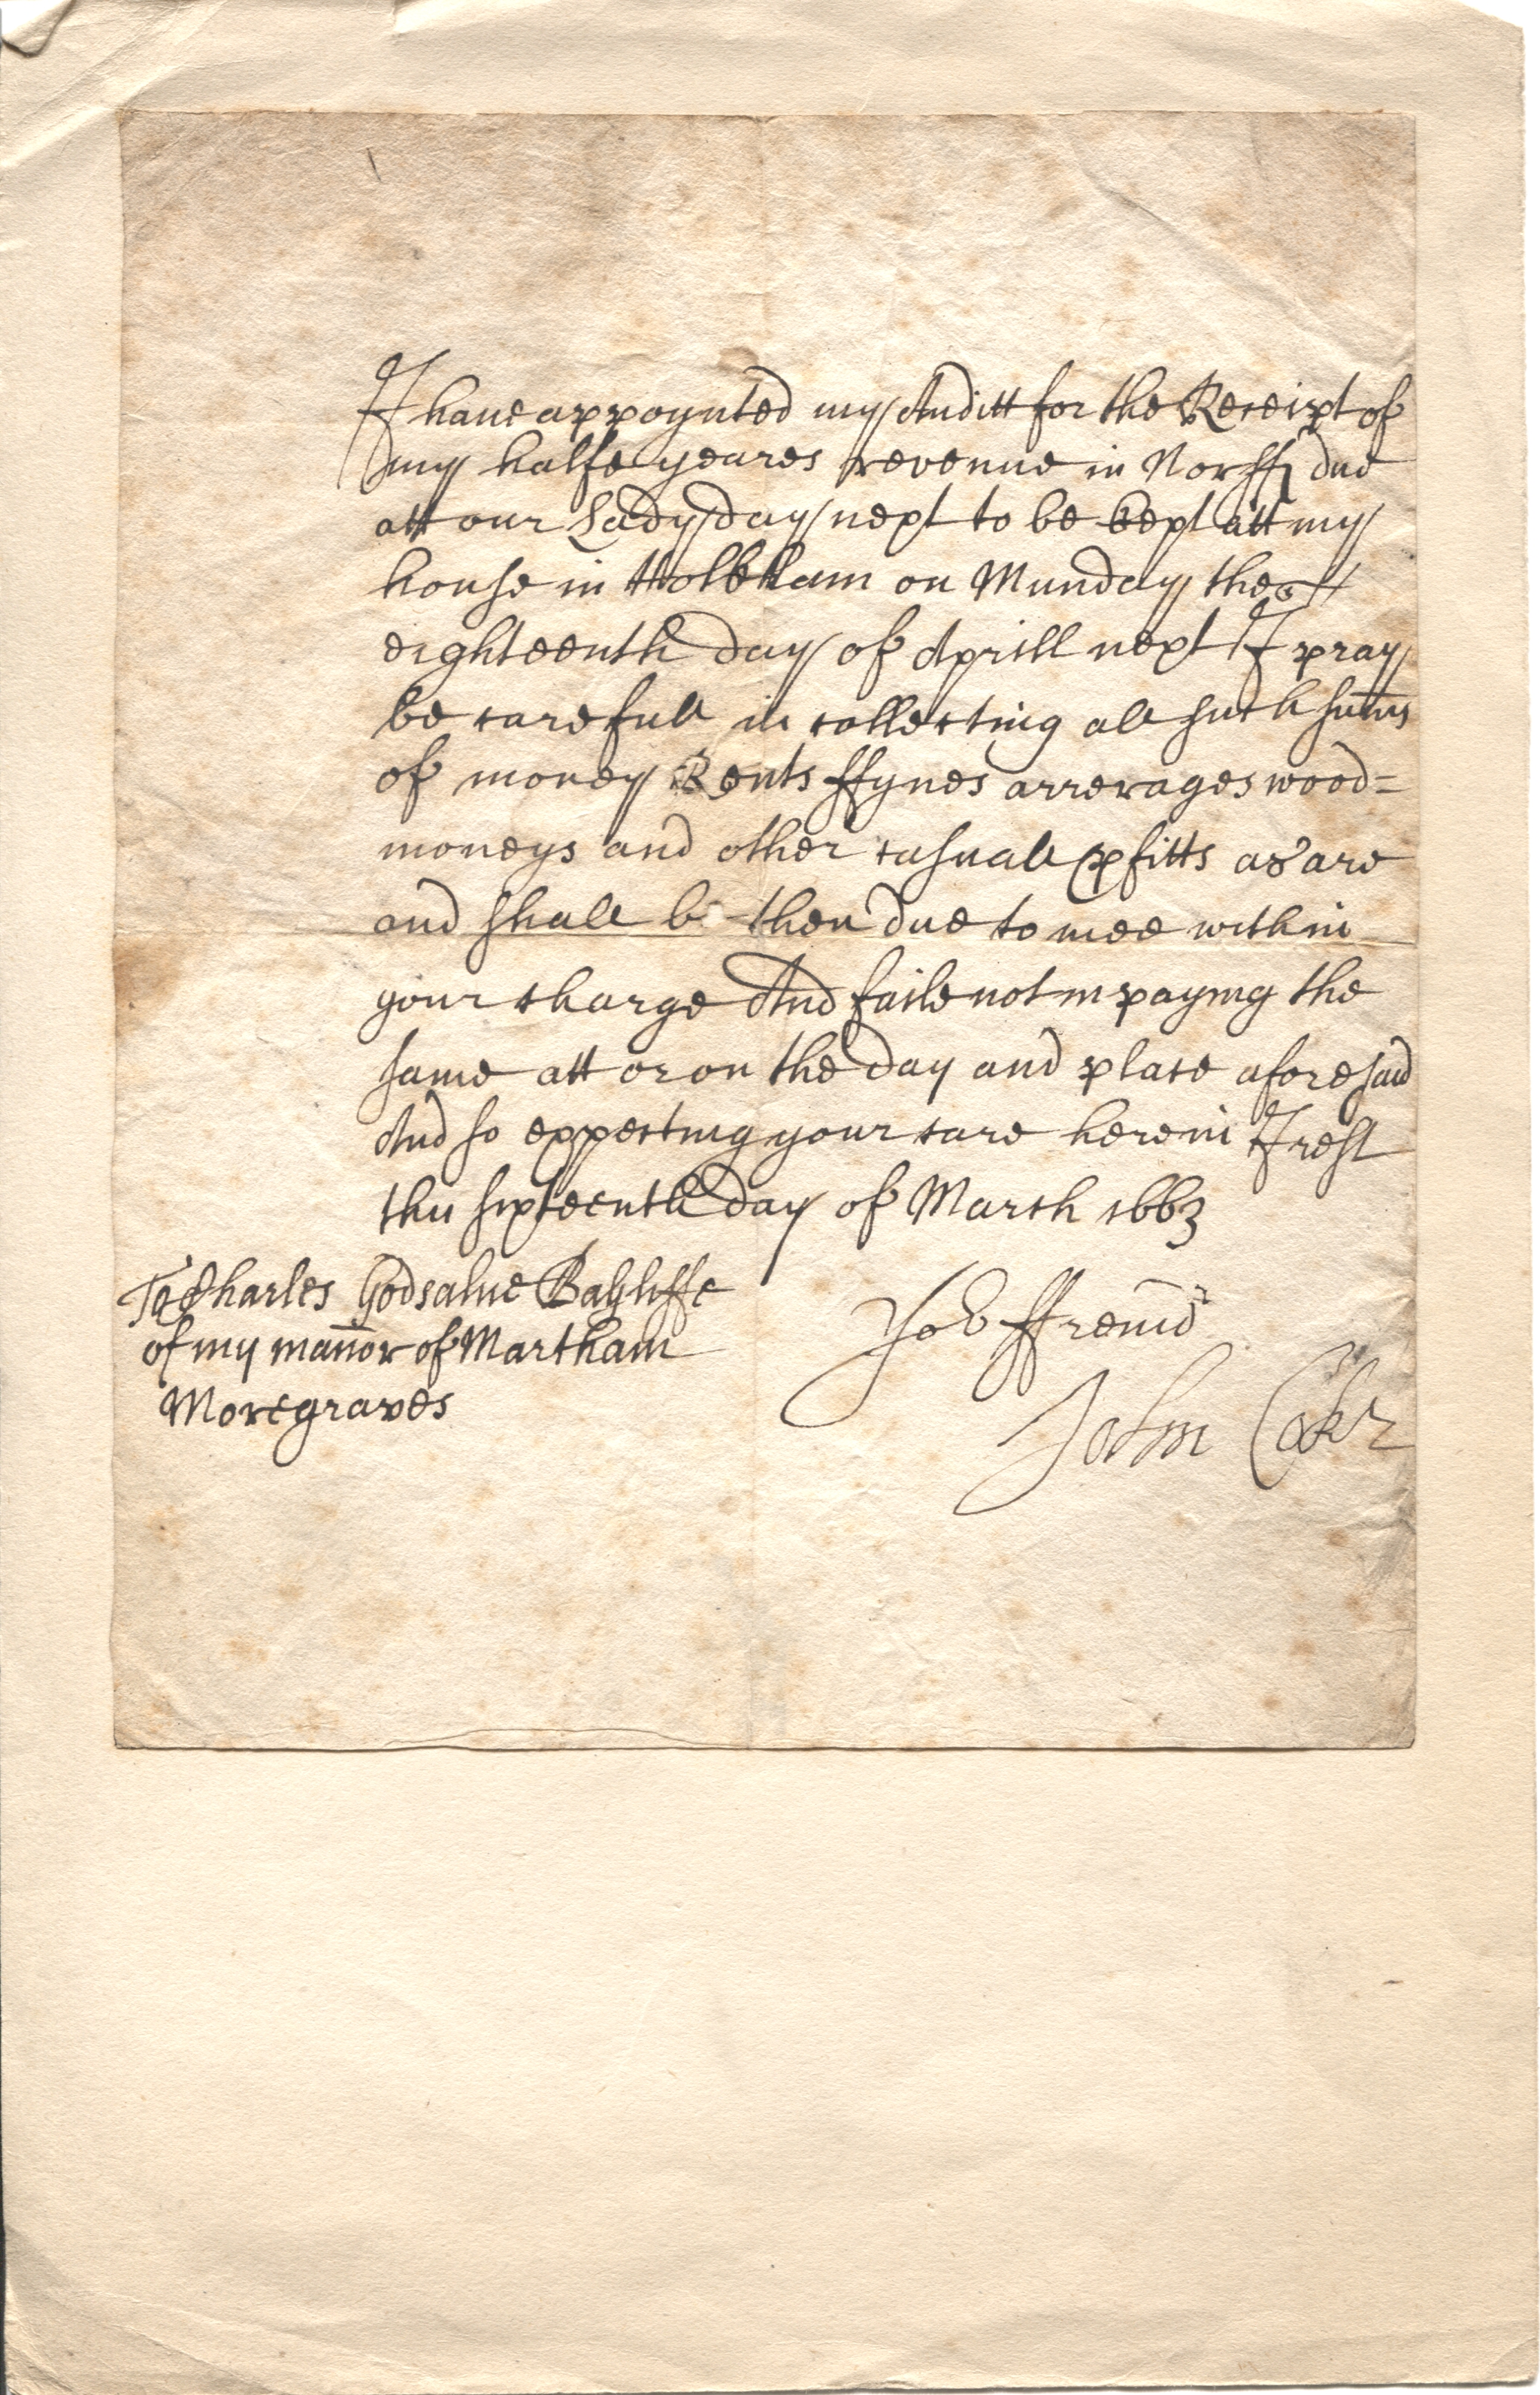 I haue appoynted my Auditt for the Receipt of
my halfe yeares revenue in Norff due
att our Lady day next to be kept att my
house in Holkham on Munday the
eighteenth day of Aprill next I pray
be carefull in collecting all such sums
of money Rents ffynes arrerages wood=
moneys and other casuall pfitts as are
and shall b then due to mee within
your charge And faile not in paying the
same att or on the day and place aforesaid
And so expecting your care herein I rest
this sixteenth day of March 1663
To Charles Godsalue Bayliffe
of my manor of Martham
Moregraves
Yor ffreind
John Coke